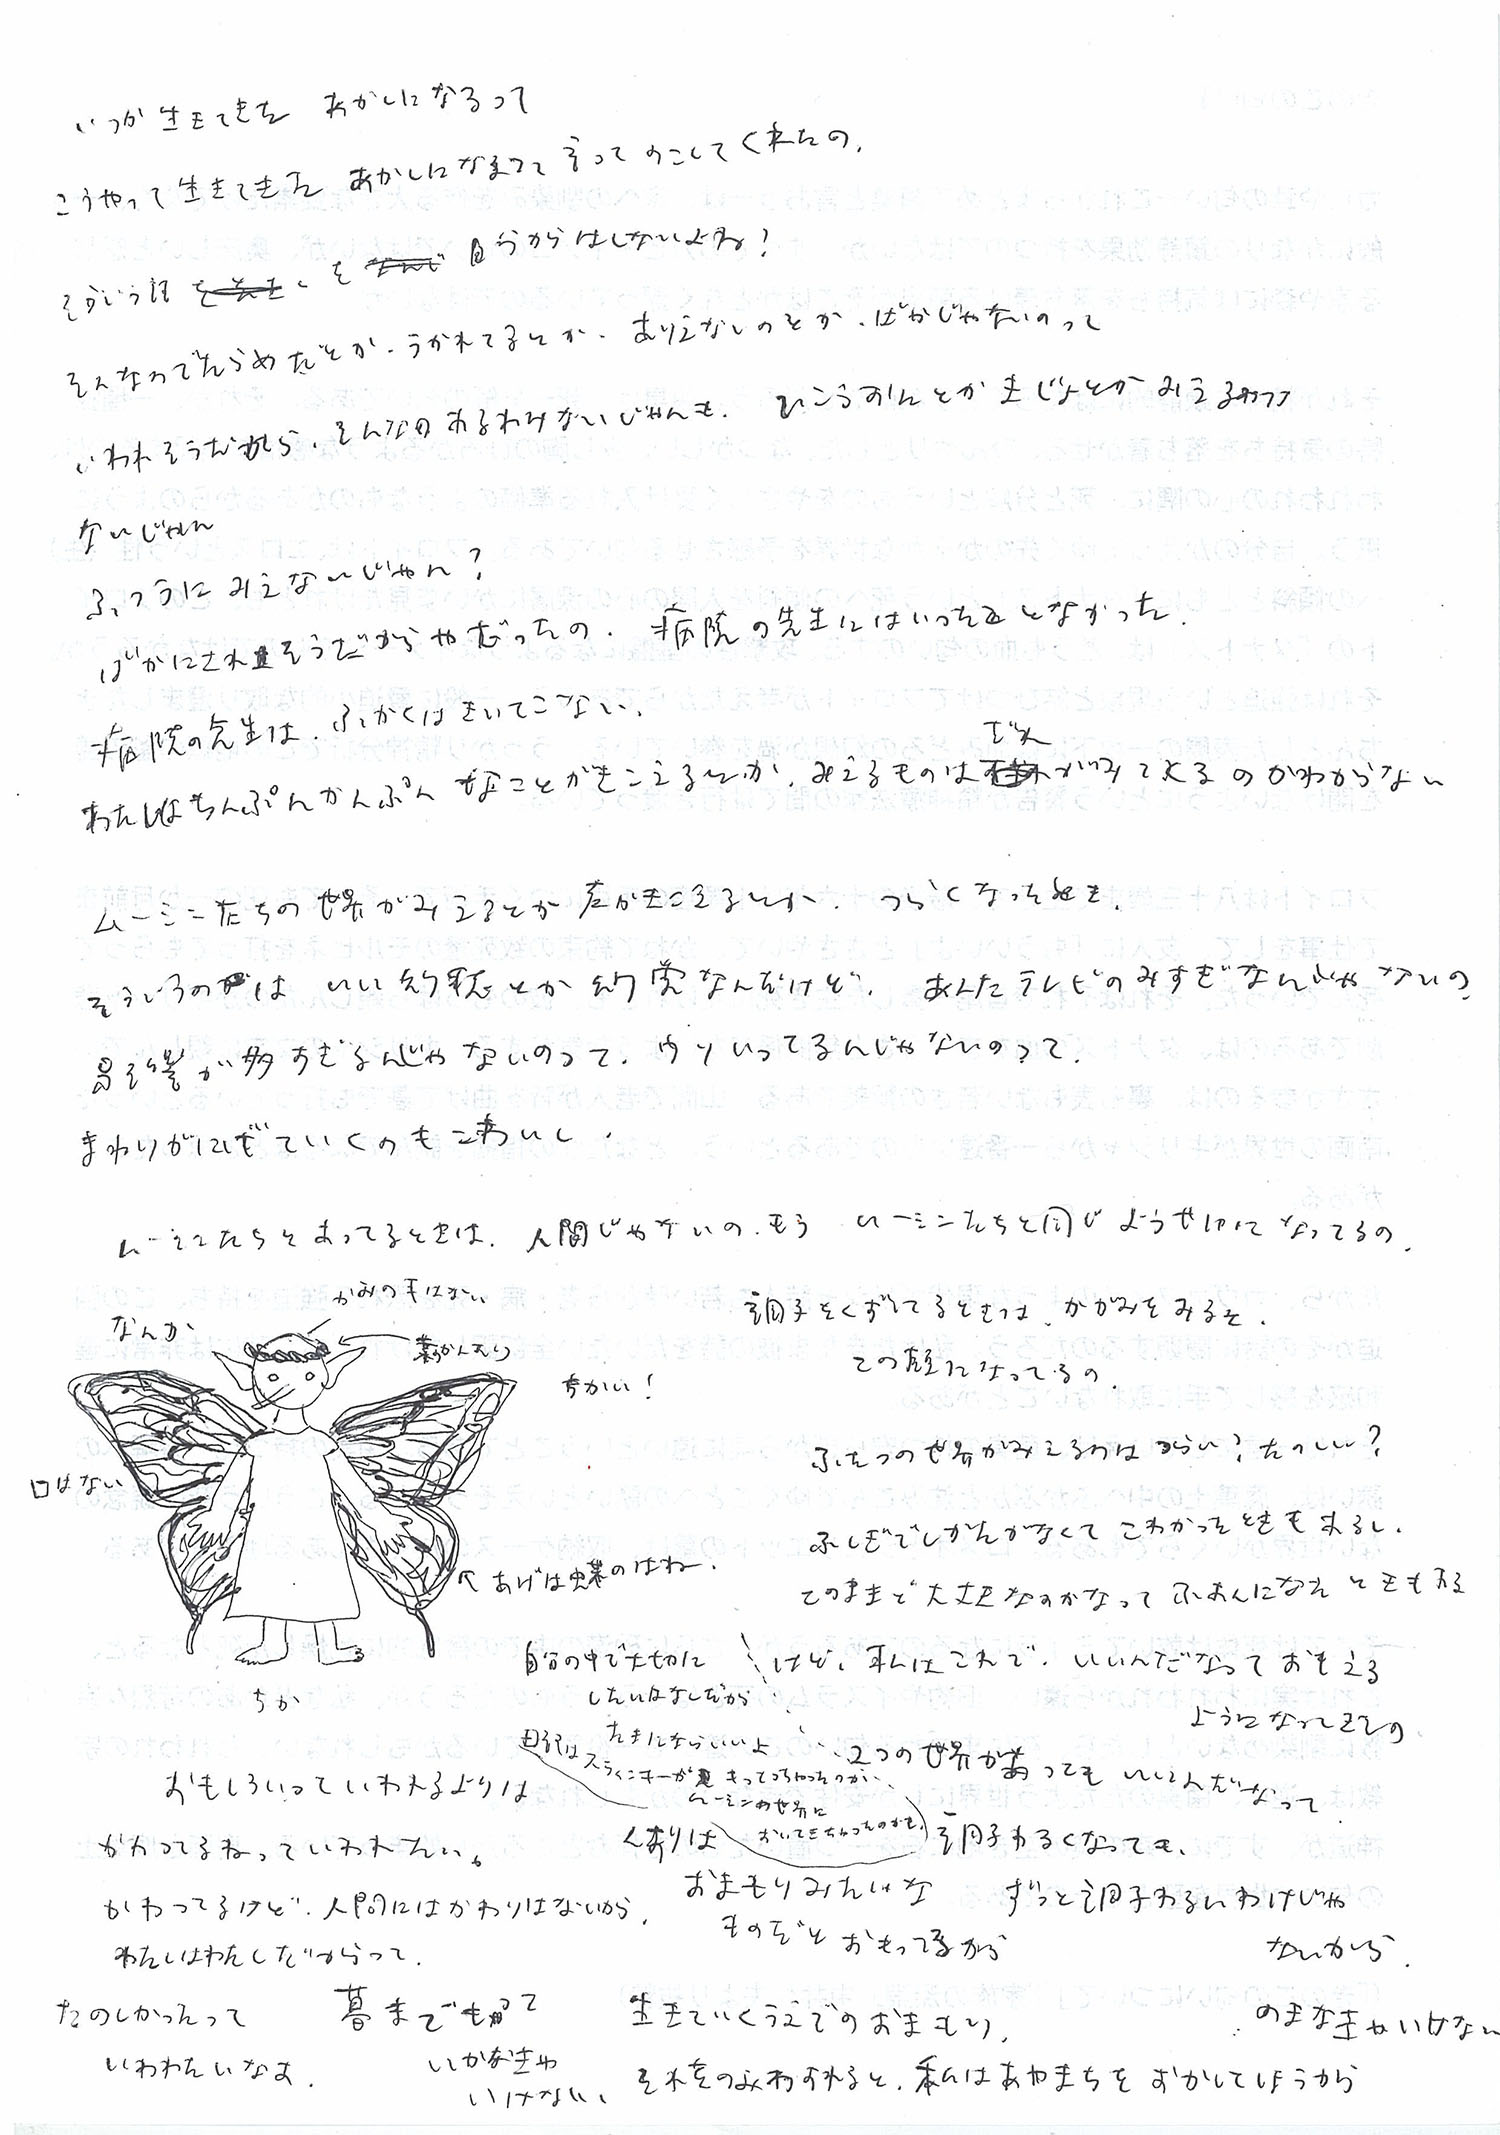 いつか生きてきた あかしになるって
こうやって生きてきた あかしになるって言ってのこしてくれたの、
そういう話を 、を 自分からはしないよね?
そんなのでたらめだとか、うかれてるとか、ありえないのとか、ばかじゃないのって
いわれそうだから、そんなのあるわけないじゃんも、ひこうおんとかまじょとかみえるわけ
ないじゃん
ふつうにみえないじゃん?
ばかにされそうだからやだったの、病院の先生にはいったことなかった、
病院の先生は、ふかくはきいてこない、
わたしはちんぷんかんぷんなことがきこえるとか、みえるものは がみてくるのかわからない
ムーミンたちの世界がみえるとか声がきこえるとか、つらくなったとき、
そういうのがは いい幻聴とか幻覚なんだけど、 あんたテレビのみすぎなんじゃないの?
影響が多すぎるんじゃないのって、ウソいってるんじゃないのって、
まわりがにげていくのもこわいし、
ムーミンたちとあってるときは、人間じゃないの、もう ムーミンたちと同じようせいになってるの、
かみの毛はない
なんか
かんむり
ちかい!
口はない
↖あげは蝶のはね、
ちか
調子をくずしてるときは、かがみをみると、
この顔になってるの、
ふたつの世界がみえるのはつらい?たのしい?
ふしぎでしかたがなくてこわかったときもあるし、
このままで大丈夫なのかなってふあんになるときもある
けど、私はこれで、いいんだなっておもえる
ようになってきたの、
2つの世界があってもいいんだなって
調子わるくなっても、
ずっと調子わるいわけじゃ
ないから、
自分の中で大切に
したいはなしだから
たまにならいいよ
日記は
スティンキーが もってっちゃったのか、
ムーミンの世界に
おいてきちゃったのかも、
おもしろいっていわれるよりは
かわってるねっていわれたい。
かわってるけど、人間にはかわりはないから、
わたしはわたしだからって、
たのしかったって
いわわたいなあ、
墓までもって
いかなきゃ
いけない、
おまもりみたいな
ものだとおもってるから
生きていくうえでのおまもり、
のまなきゃいけない
それをのみわすれると、私はあやまちをおかしてしまうから